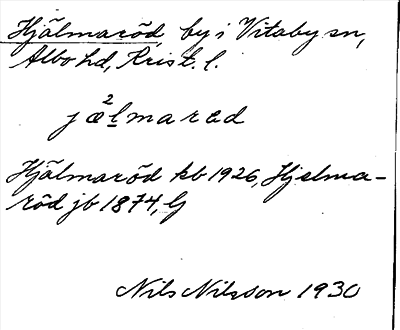 Hjälmaröd, by i Vitaby sn,
Albo hd, Krist. l.
jæ²lmarœd
Hjälmaröd kb 1926, Hjelma-
röd jb 1874, G
Nils Nilsson 1930